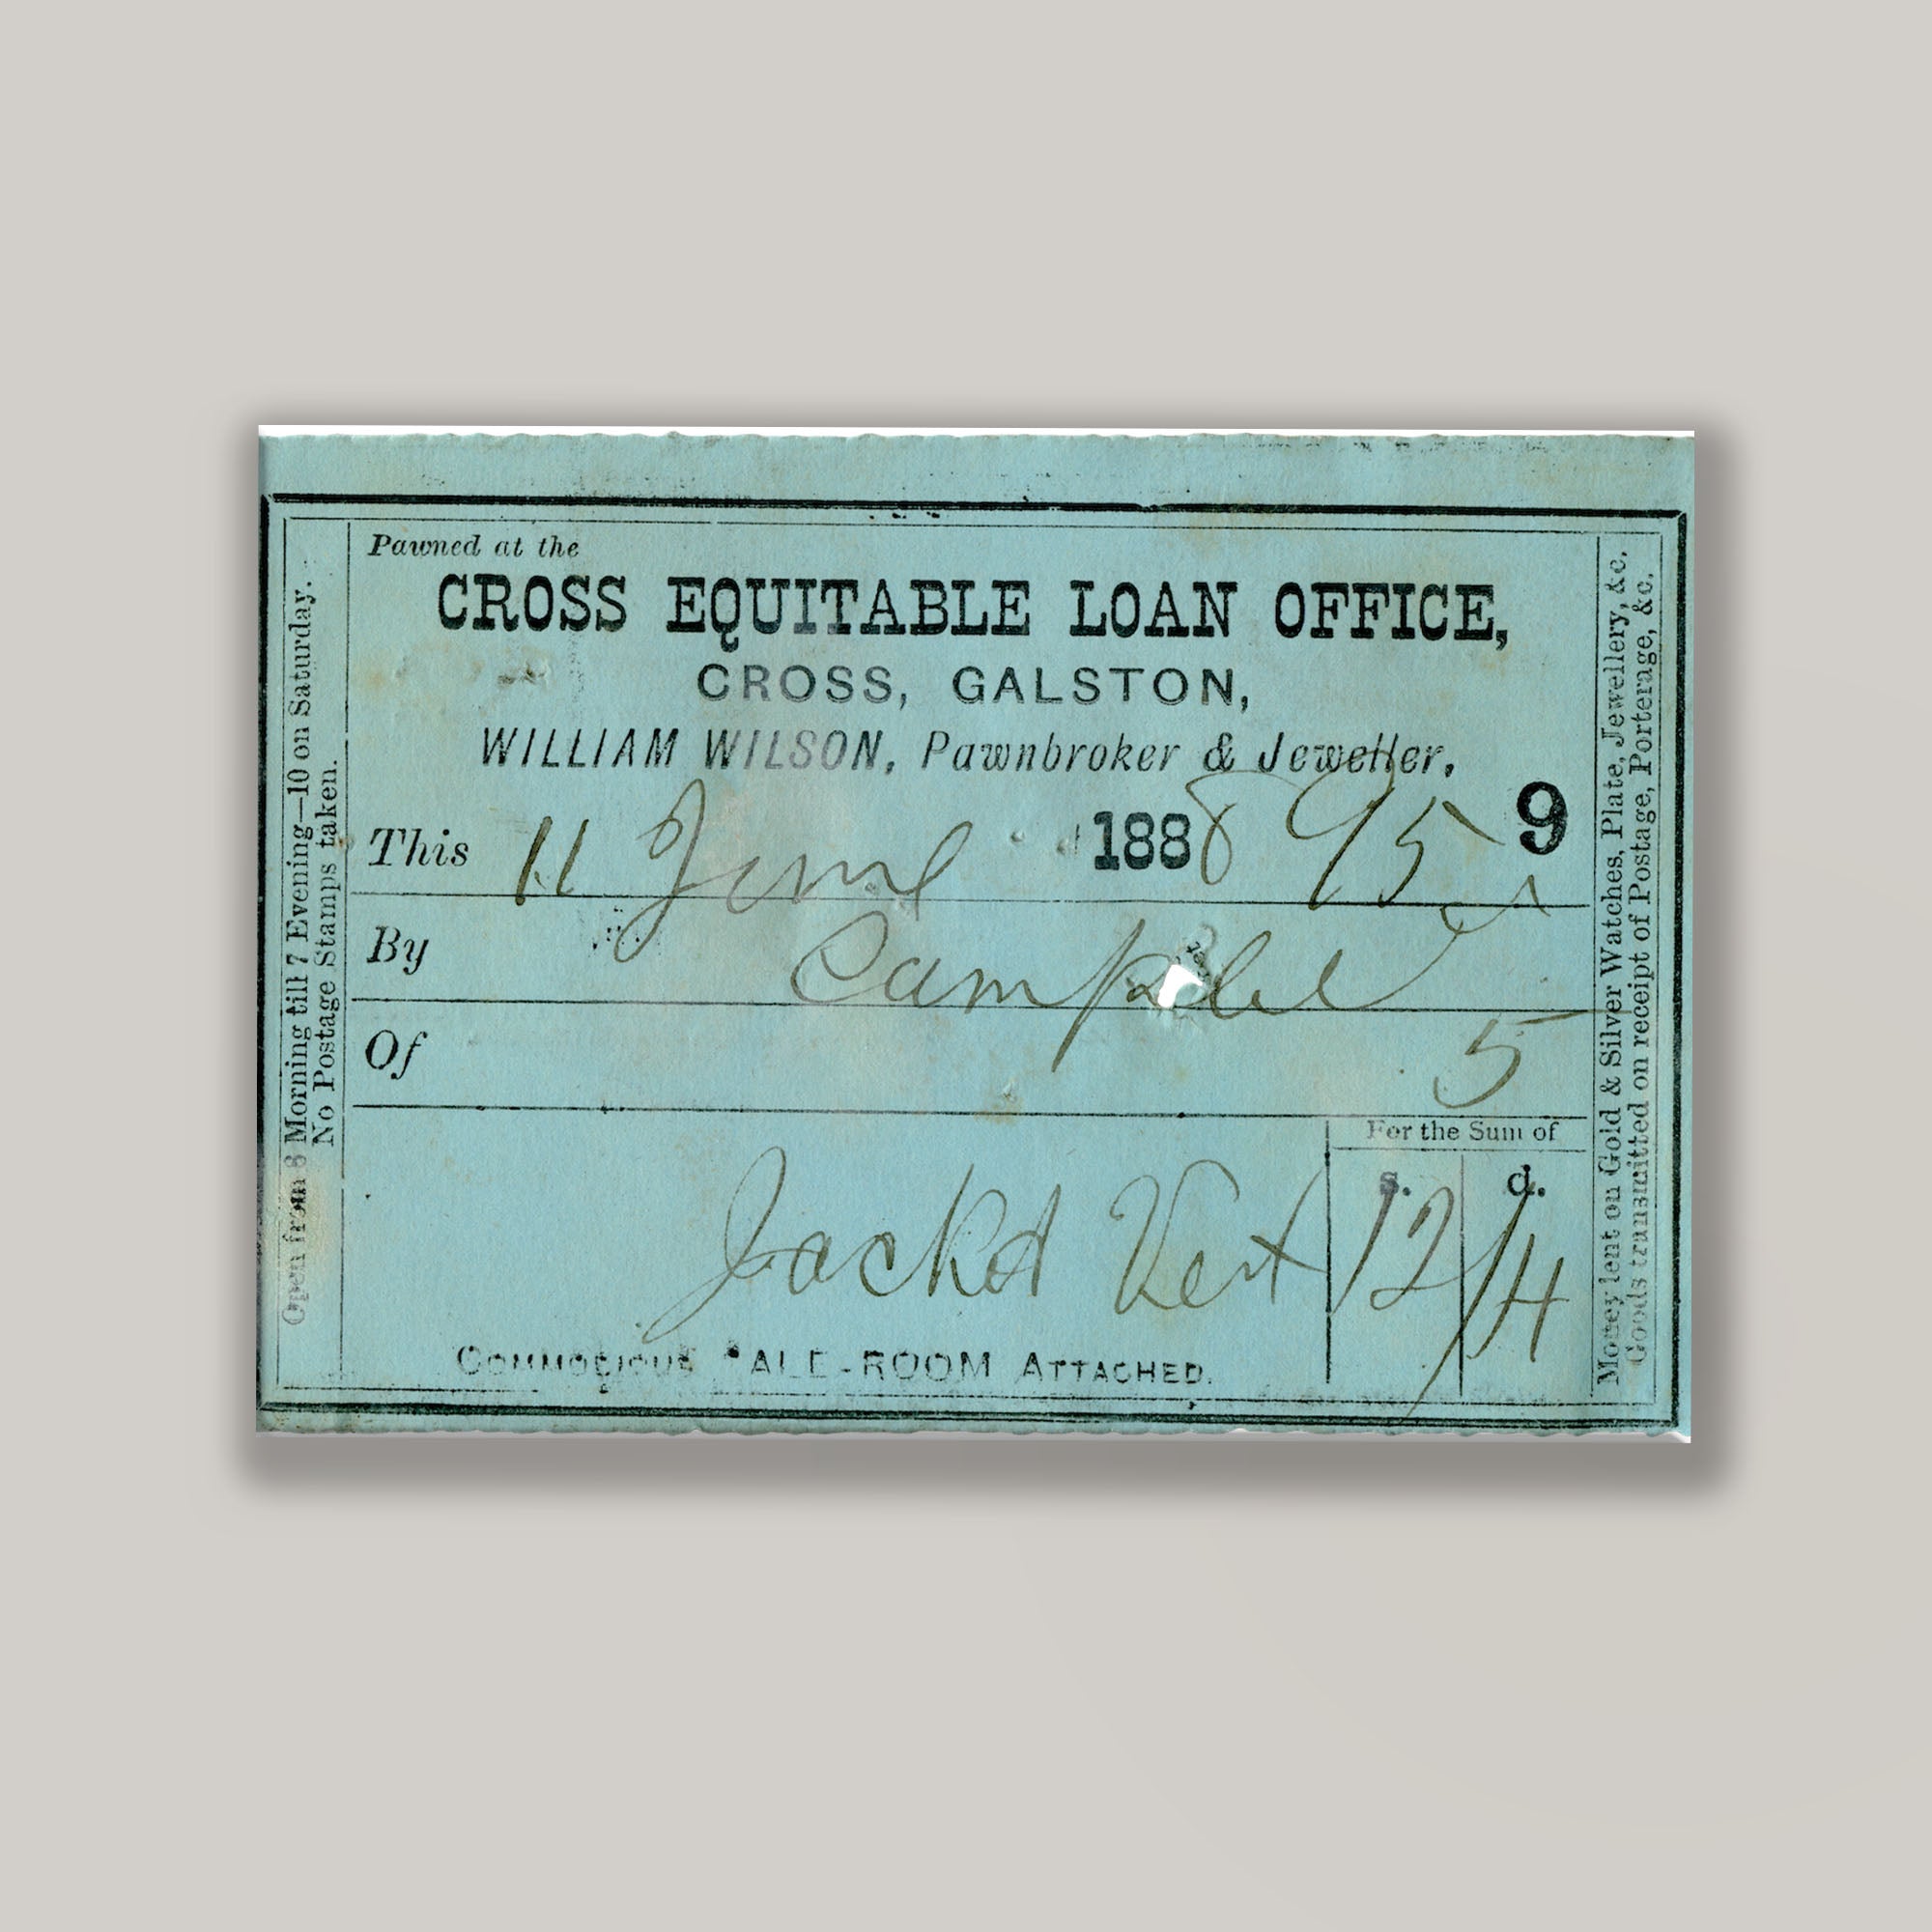 Pawned at the
CROSS EQUITABLE LOAN OFFICE,
CROSS, GALSTON,
WILLIAM WILSON, Pawnbroker & Jeweller.
This 11 June 1888 95 9
By Campbel
Of 5
For the Sum of
s. d.
Jackt Vest 12/4
COMMODIOUS SALE-ROOM ATTACHED.
Open from 8 Morning till 7 Evening—10 on Saturday.
No Postage Stamps taken.
Money lent on Gold & Silver Watches, Plate, Jewellery, &c.
Goods transmitted on receipt of Postage, Porterage, &c.